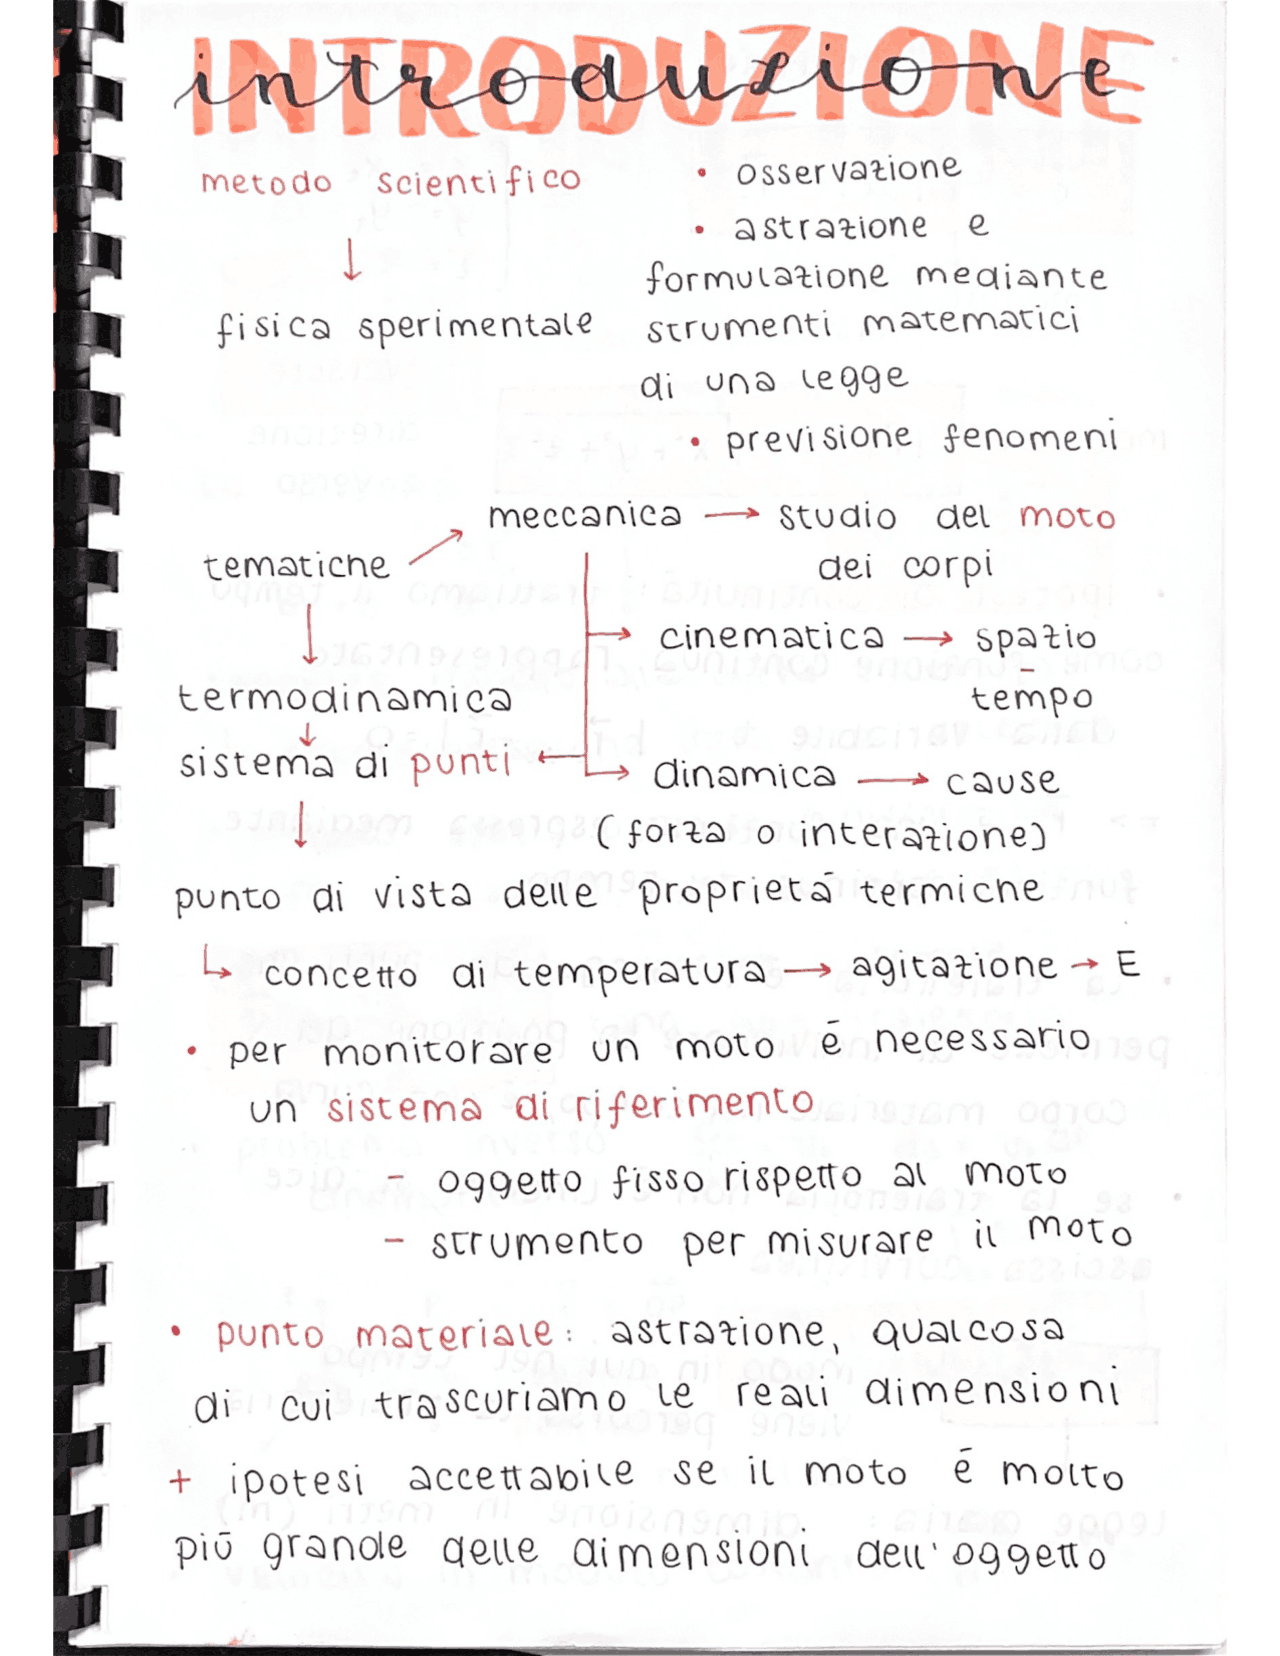 INTRODUZIONE
introduzione
metodo scientifico
↓
fisica sperimentale
• osservazione
• astrazione e
formulazione mediante
strumenti matematici
di una legge
• previsione fenomeni
tematiche ↗ meccanica → studio del moto
dei corpi
→ cinematica → spazio
-
tempo
↓
termodinamica
↓
sistema di punti ←
→ dinamica → cause
(forza o interazione)
↓
punto di vista delle proprietā termiche
↳ concetto di temperatura → agitazione → E
• per monitorare un moto ē necessario
un sistema di riferimento
- oggetto fisso rispetto al moto
- strumento per misurare il moto
• punto materiale: astrazione, qualcosa
di cui trascuriamo le reali dimensioni
+ ipotesi accettabile se il moto ē molto
piū grande delle dimensioni dell'oggetto